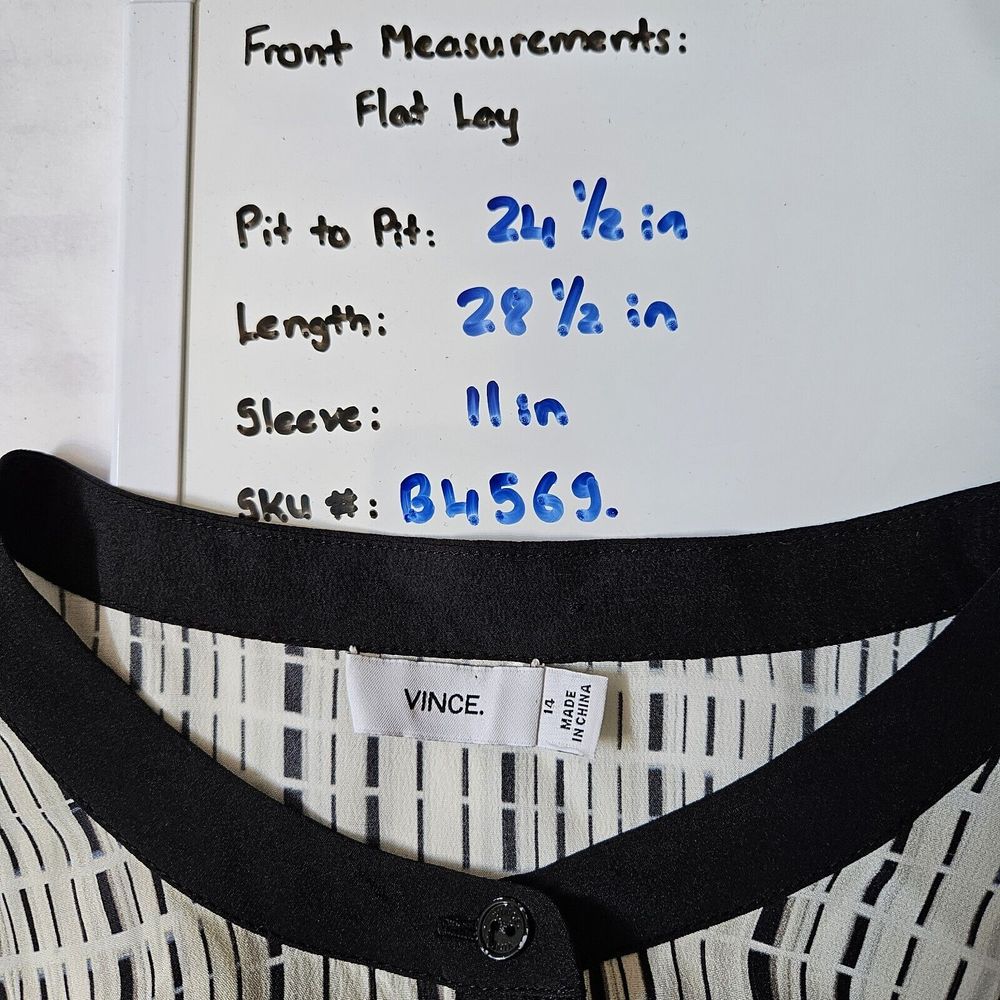 Front Measurements:
Flat Lay
Pit to Pit: 24 1/2 in
Length: 28 1/2 in
Sleeve: 11 in
SKU #: B4569.
VINCE.
14
MADE
IN CHINA